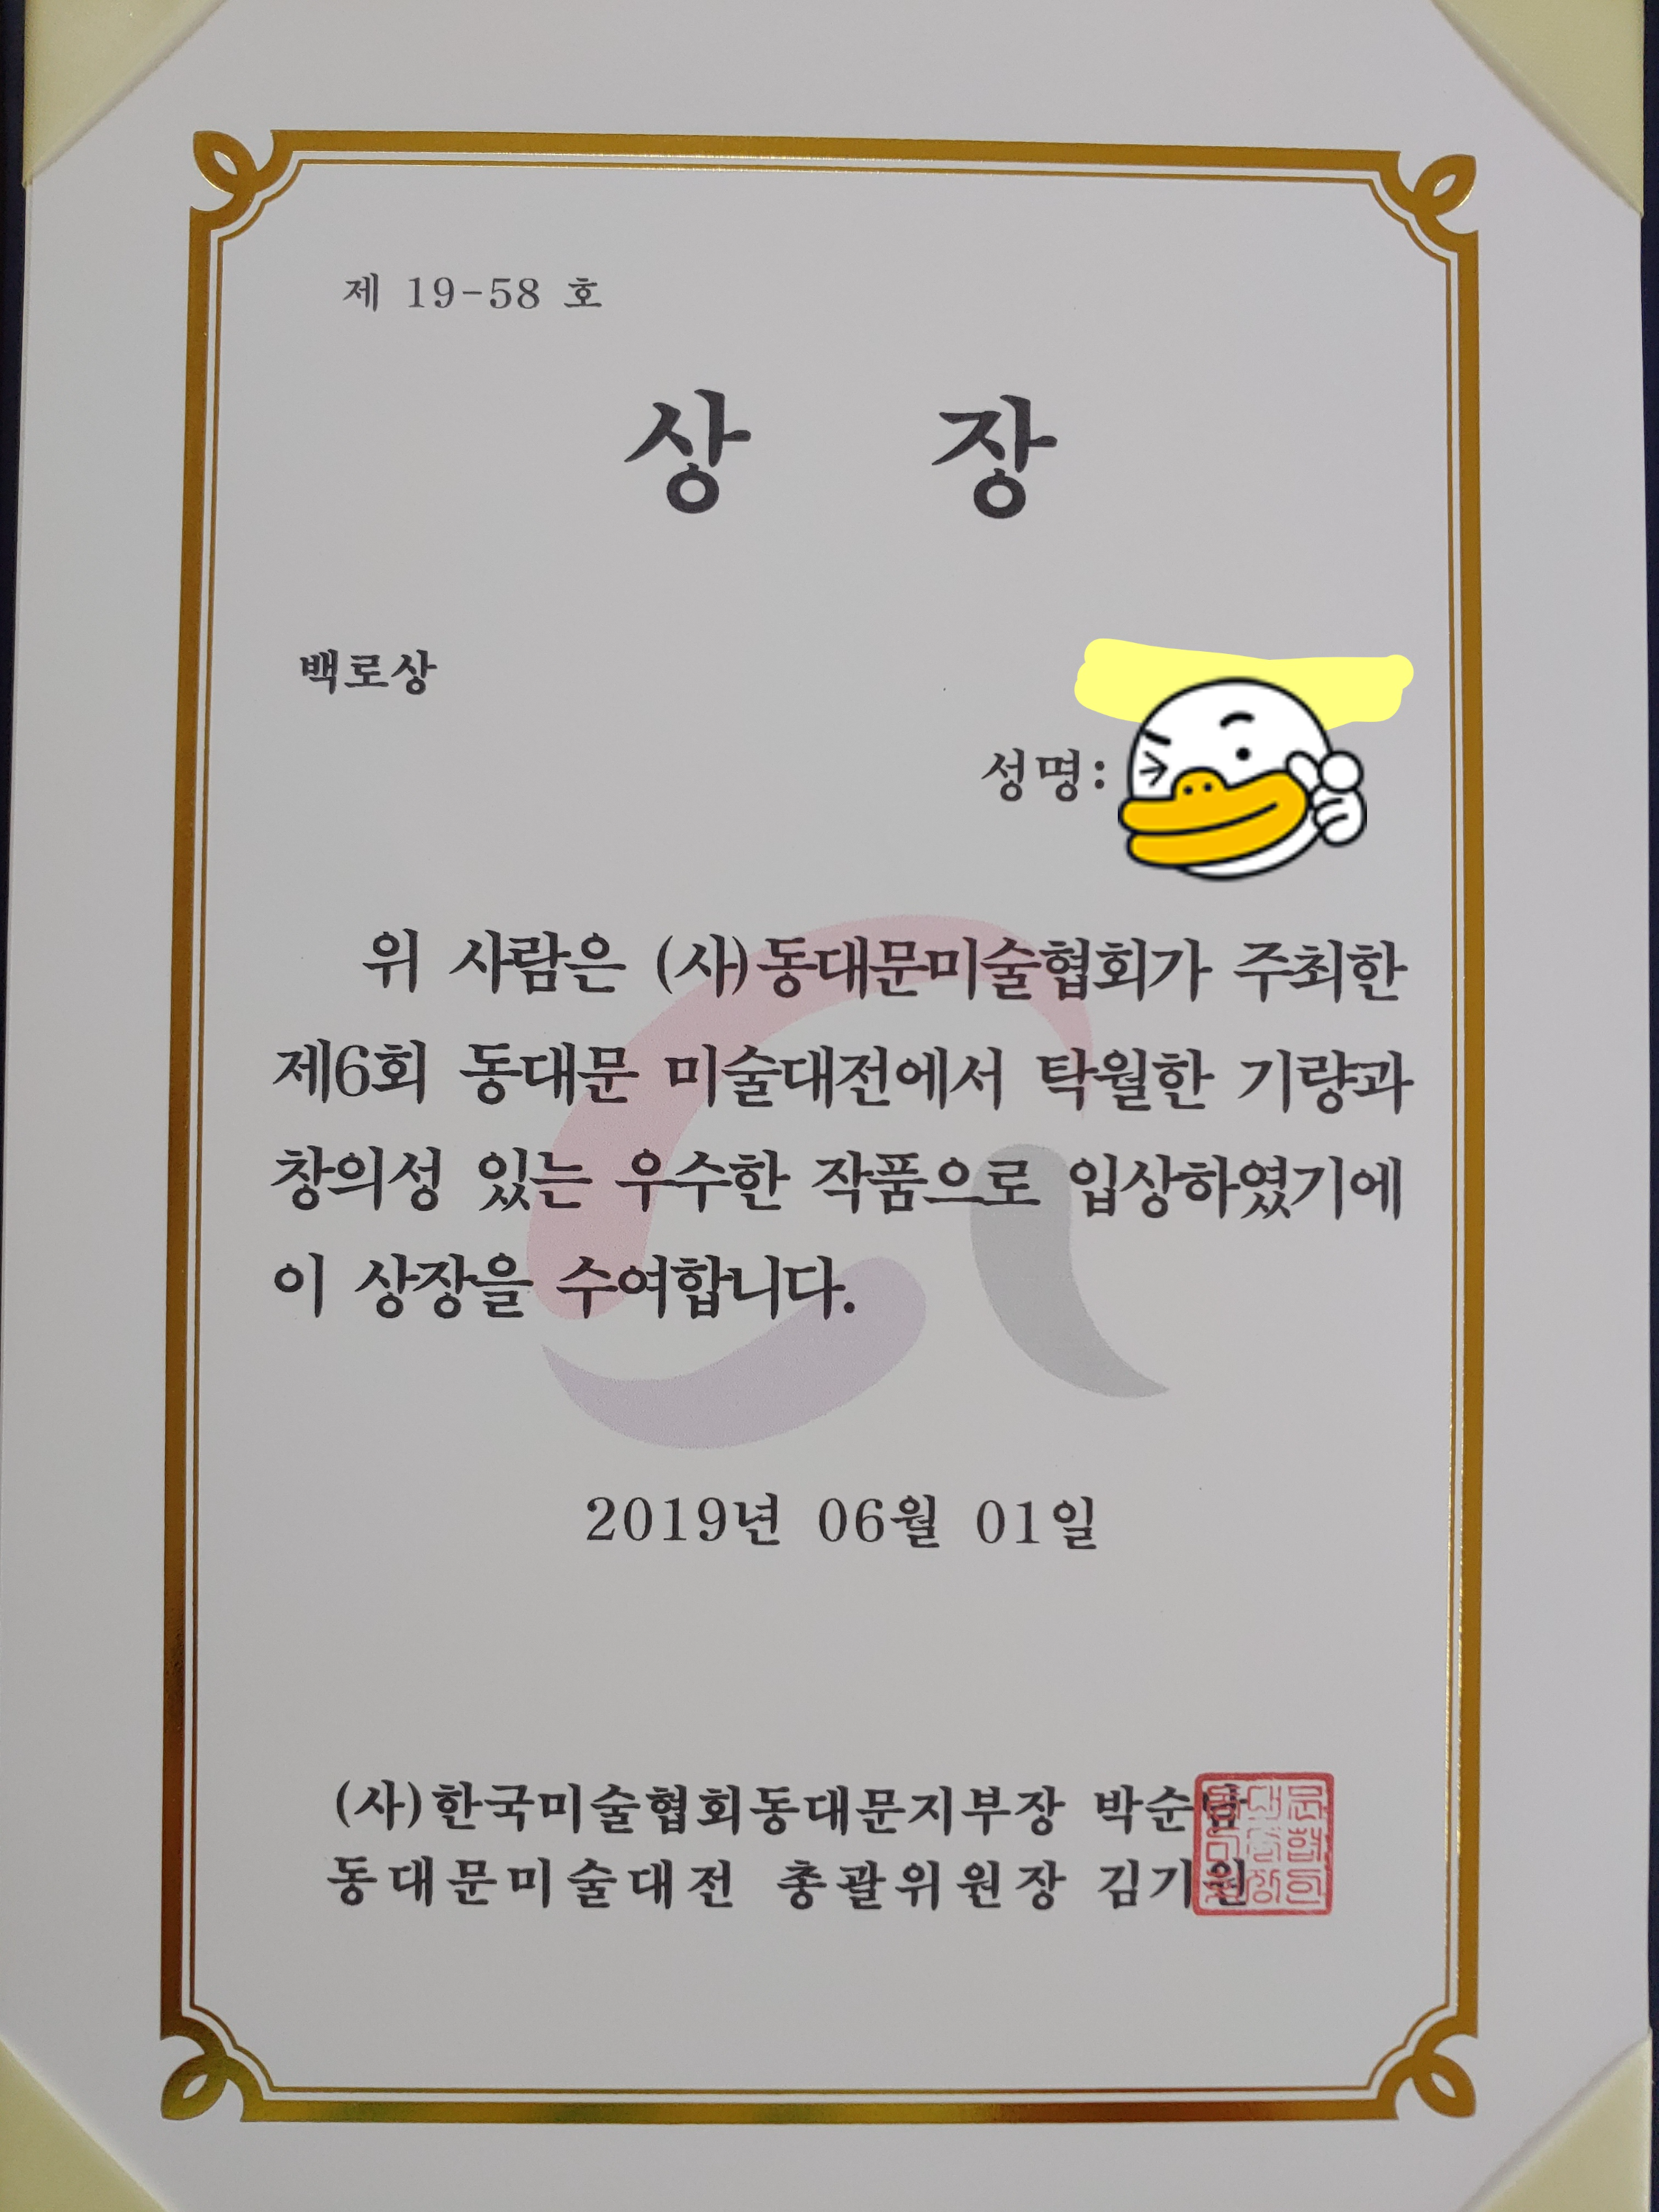 제 19-58 호
상 장
백로상
성명:
위 사람은 (사)동대문미술협회가 주최한
제6회 동대문 미술대전에서 탁월한 기량과
창의성 있는 우수한 작품으로 입상하였기에
이 상장을 수여합니다.
2019년 06월 01일
(사)한국미술협회동대문지부장
동대문미술대전 총괄위원장 김기원